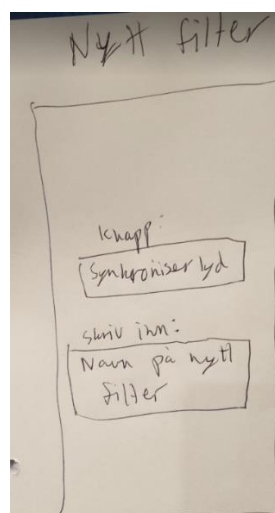 Nytt filter
Knapp:
Synkroniser lyd
skriv inn:
Navn på nytt
filter